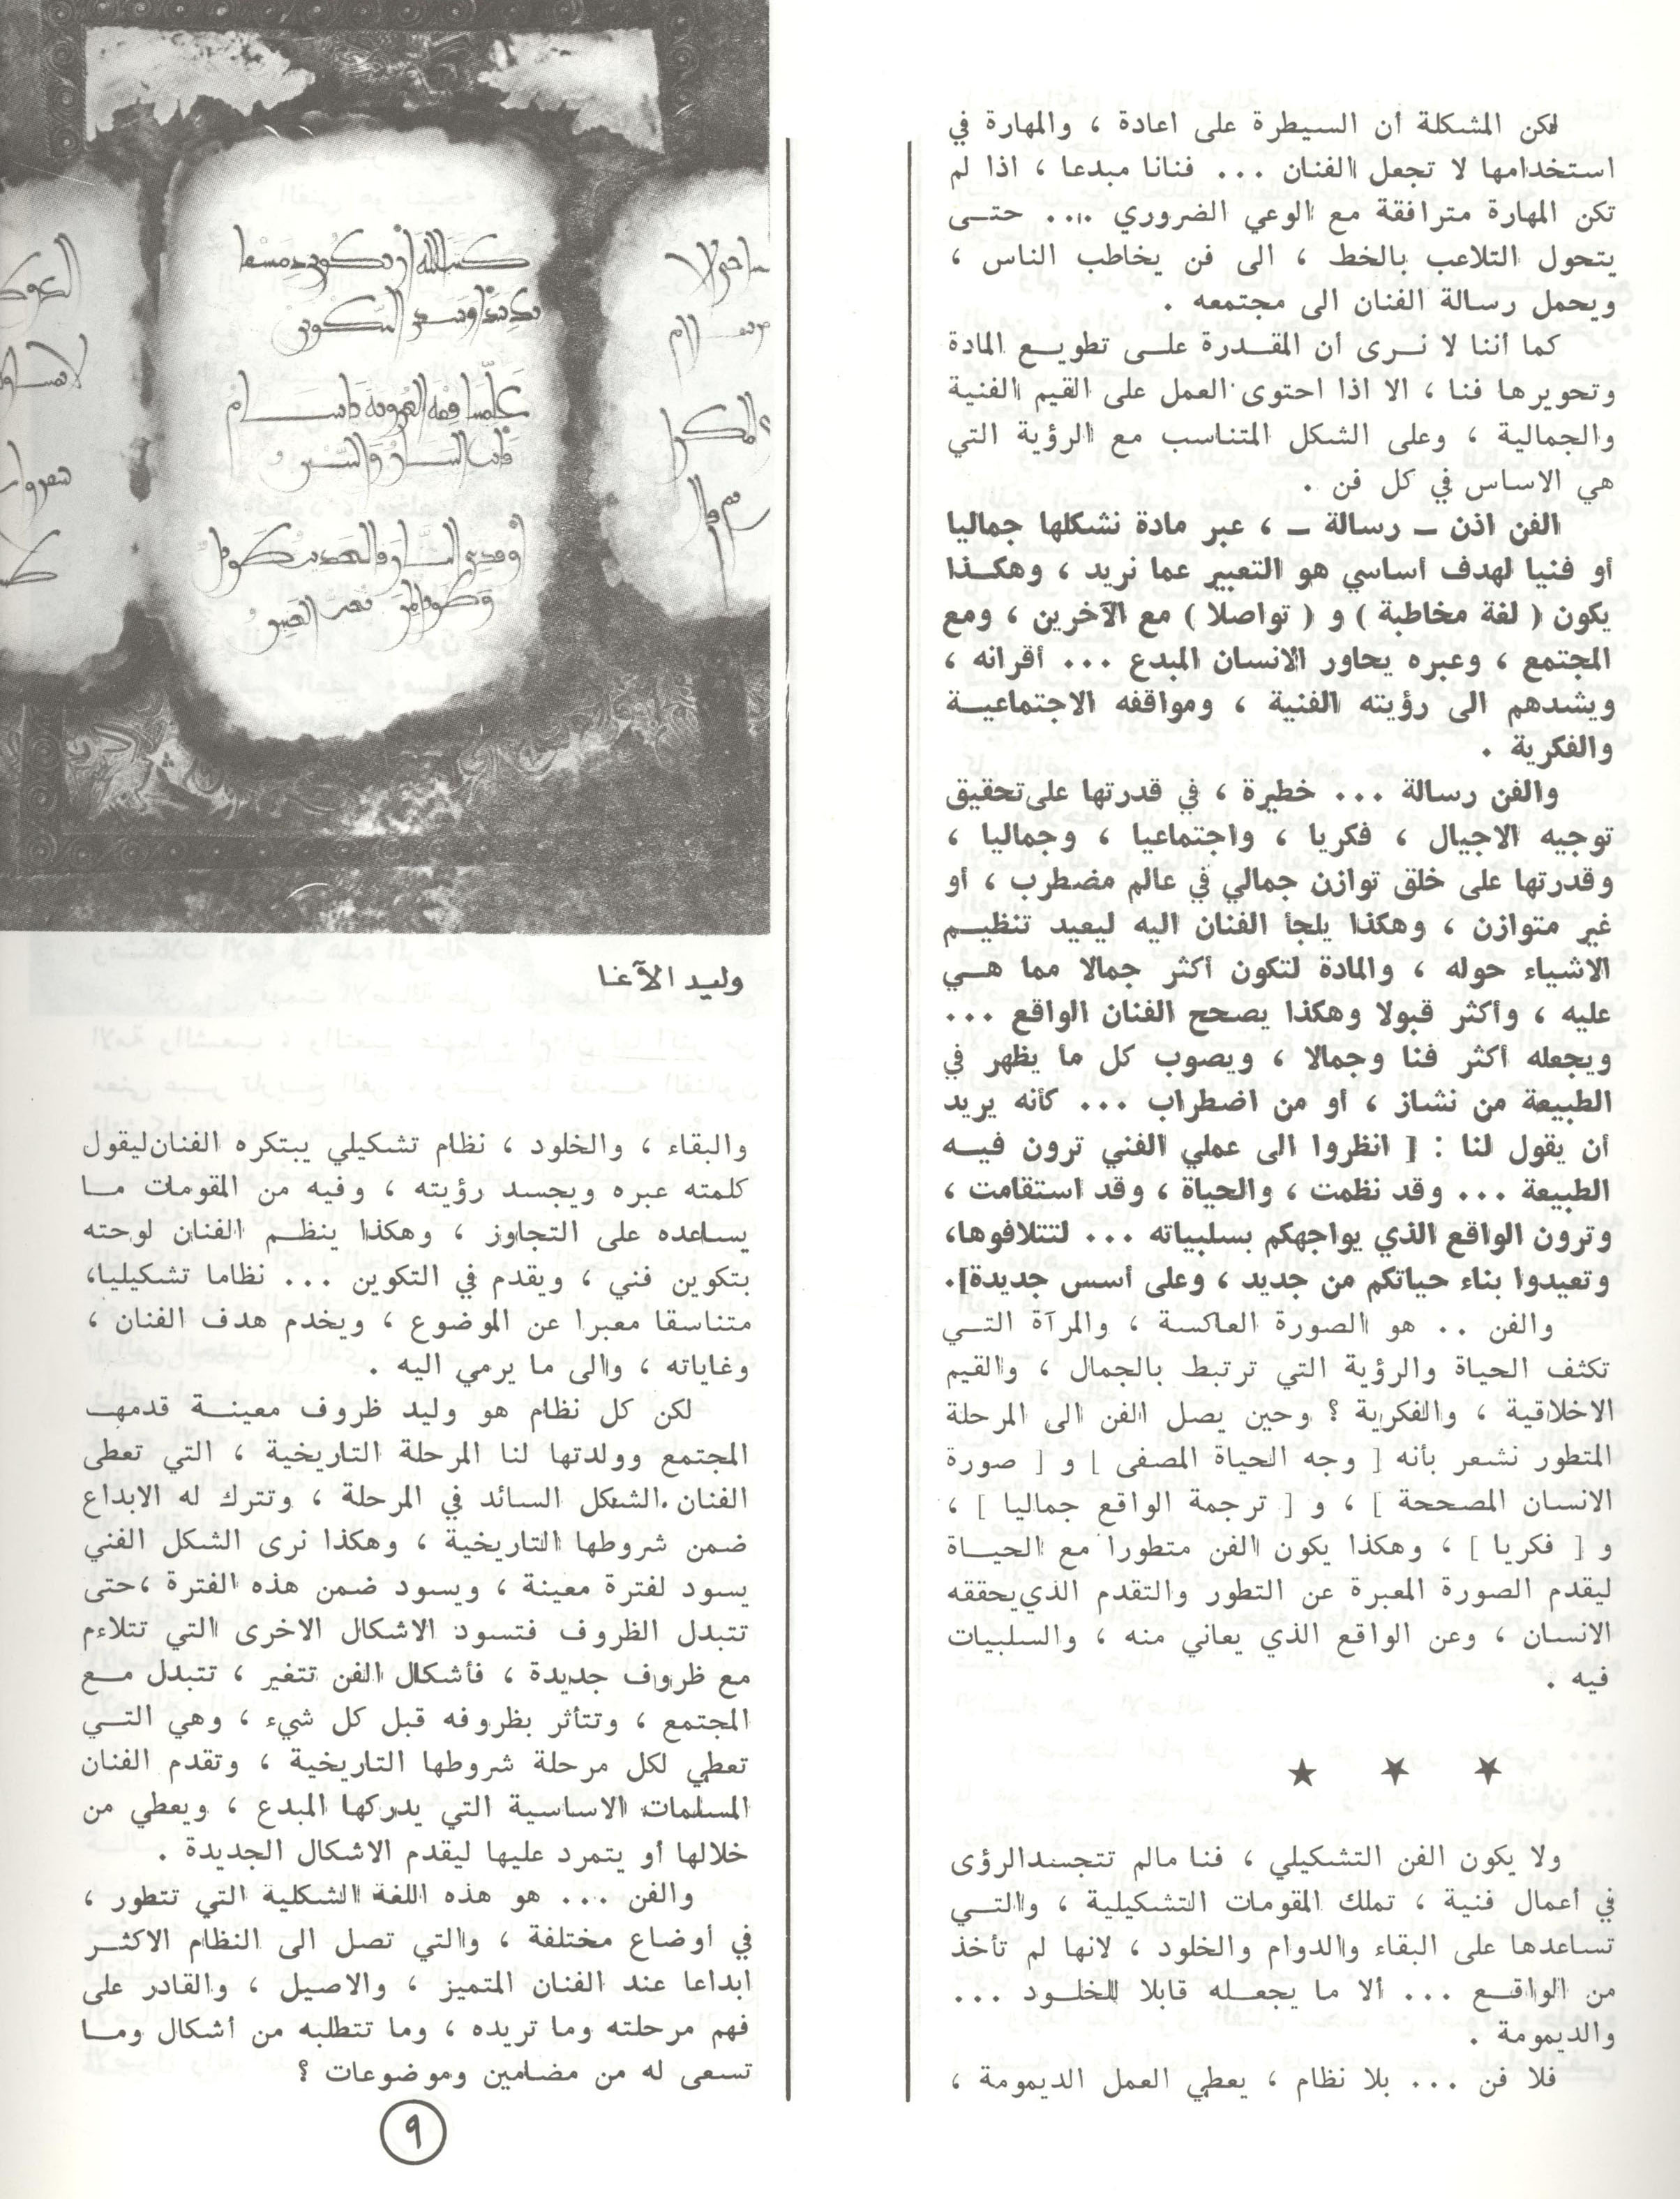 لكن المشكلة أن السيطرة على اعادة ، والمهارة في
استخدامها لا تجعل الفنان ... فنانا مبدعا ، اذا لم
تكن المهارة مترافقة مع الوعي الضروري ... حتـى
يتحول التلاعب بالخط ، الى فن يخاطب الناس ،
ويحمل رسالة الفنان الى مجتمعه .
كما أننا لا نـرى أن المقـدرة علـى تطويـع المادة
وتحويرها فنا ، الا اذا احتوى العمل على القيم الفنية
والجمالية ، وعلى الشكل المتناسب مع الرؤية التي
هي الاساس في كل فن .
الفن اذن ــ رسالة ــ ، عبر مادة نشكلها جماليا
أو فنيا لهدف أساسي هو التعبير عما نريد ، وهكـذا
يكون ( لغة مخاطبة ) و ( تواصلا ) مع الآخرين ، ومع
المجتمع ، وعبره يحاور الانسان المبدع ... أقرانه ،
ويشدهم الى رؤيته الفنية ، ومواقفه الاجتماعيـة
والفكرية .
والفن رسالة ... خطيرة ، في قدرتها على تحقيق
توجيه الاجيال ، فكريا ، واجتماعيا ، وجماليا ،
وقدرتها على خلق توازن جمالي في عالم مضطرب ، أو
غير متوازن ، وهكذا يلجأ الفنان اليه ليعيد تنظيـم
الاشياء حوله ، والمادة لتكون أكثر جمالا مما هـي
عليه ، وأكثر قبولا وهكذا يصحح الفنان الواقع ...
ويجعله أكثر فنا وجمالا ، ويصوب كل ما يظهر في
الطبيعة من نشاز ، أو من اضطراب ... كأنه يريد
أن يقول لنا : [ انظروا الى عملي الفني ترون فيـه
الطبيعة ... وقد نظمت ، والحياة ، وقد استقامت ،
وترون الواقع الذي يواجهكم بسلبياته ... لتتلافوها،
وتعيدوا بناء حياتكم من جديد ، وعلى أسس جديدة].
والفن .. هو الصورة العاكسة ، والمرآة التـي
تكثف الحياة والرؤية التي ترتبط بالجمال ، والقيم
الاخلاقية ، والفكرية ؟ وحين يصل الفن الى المرحلة
المتطور نشعر بأنه [ وجه الحياة المصفى ] و [ صورة
الانسان المصححة ] ، و [ ترجمة الواقع جماليا ] ،
و [ فكريا ] ، وهكذا يكون الفن متطورا مع الحيـاة
ليقدم الصورة المعبرة عن التطور والتقدم الذي يحققه
الانسان ، وعن الواقع الذي يعاني منه ، والسلبيات
فيه .
★ ★ ★
ولا يكون الفن التشكيلي ، فنا مالم تتجسد الرؤى
في أعمال فنية ، تملك المقومات التشكيلية ، والتـي
تساعدها على البقاء والدوام والخلود ، لانها لم تأخذ
من الواقـع ... ألا ما يجعـله قابلا للخلـود ...
والديمومة .
فلا فن ... بلا نظام ، يعطي العمل الديمومة ،
وليد الآغا
والبقاء ، والخلود ، نظام تشكيلي يبتكره الفنان ليقول
كلمته عبره ويجسد رؤيته ، وفيه من المقومات مـا
يساعده على التجاوز ، وهكذا ينظـم الفنان لوحته
بتكوين فني ، ويقدم في التكوين ... نظاما تشكيليا،
متناسقا معبرا عن الموضوع ، ويخدم هدف الفنان ،
وغاياته ، والى ما يرمي اليه .
لكن كل نظام هو وليد ظروف معينـة قدمهـ
المجتمع وولدتها لنا المرحلة التاريخية ، التي تعطى
الفنان .الشكل السائد في المرحلة ، وتترك له الابداع
ضمن شروطها التاريخية ، وهكذا نرى الشكل الفني
يسود لفترة معينة ، ويسود ضمن هذه الفترة ،حتى
تتبدل الظروف فتسود الاشكال الاخرى التي تتلاءم
مع ظروف جديدة ، فأشكال الفن تتغير ، تتبدل مـع
المجتمع ، وتتأثر بظروفه قبل كل شيء ، وهي التـي
تعطي لكل مرحلة شروطها التاريخية ، وتقدم الفنان
المسلمات الاساسية التي يدركها المبدع ، ويعطي من
خلالها أو يتمرد عليها ليقدم الاشكال الجديدة .
والفن ... هو هذه اللغة الشكلية التي تتطور ،
في أوضاع مختلفة ، والتي تصل الى النظام الاكثـر
ابداعا عند الفنان المتميز ، والاصيل ، والقادر على
فهم مرحلته وما تريده ، وما تتطلبه من أشكال ومـا
تسعى له من مضامين وموضوعات ؟
٩